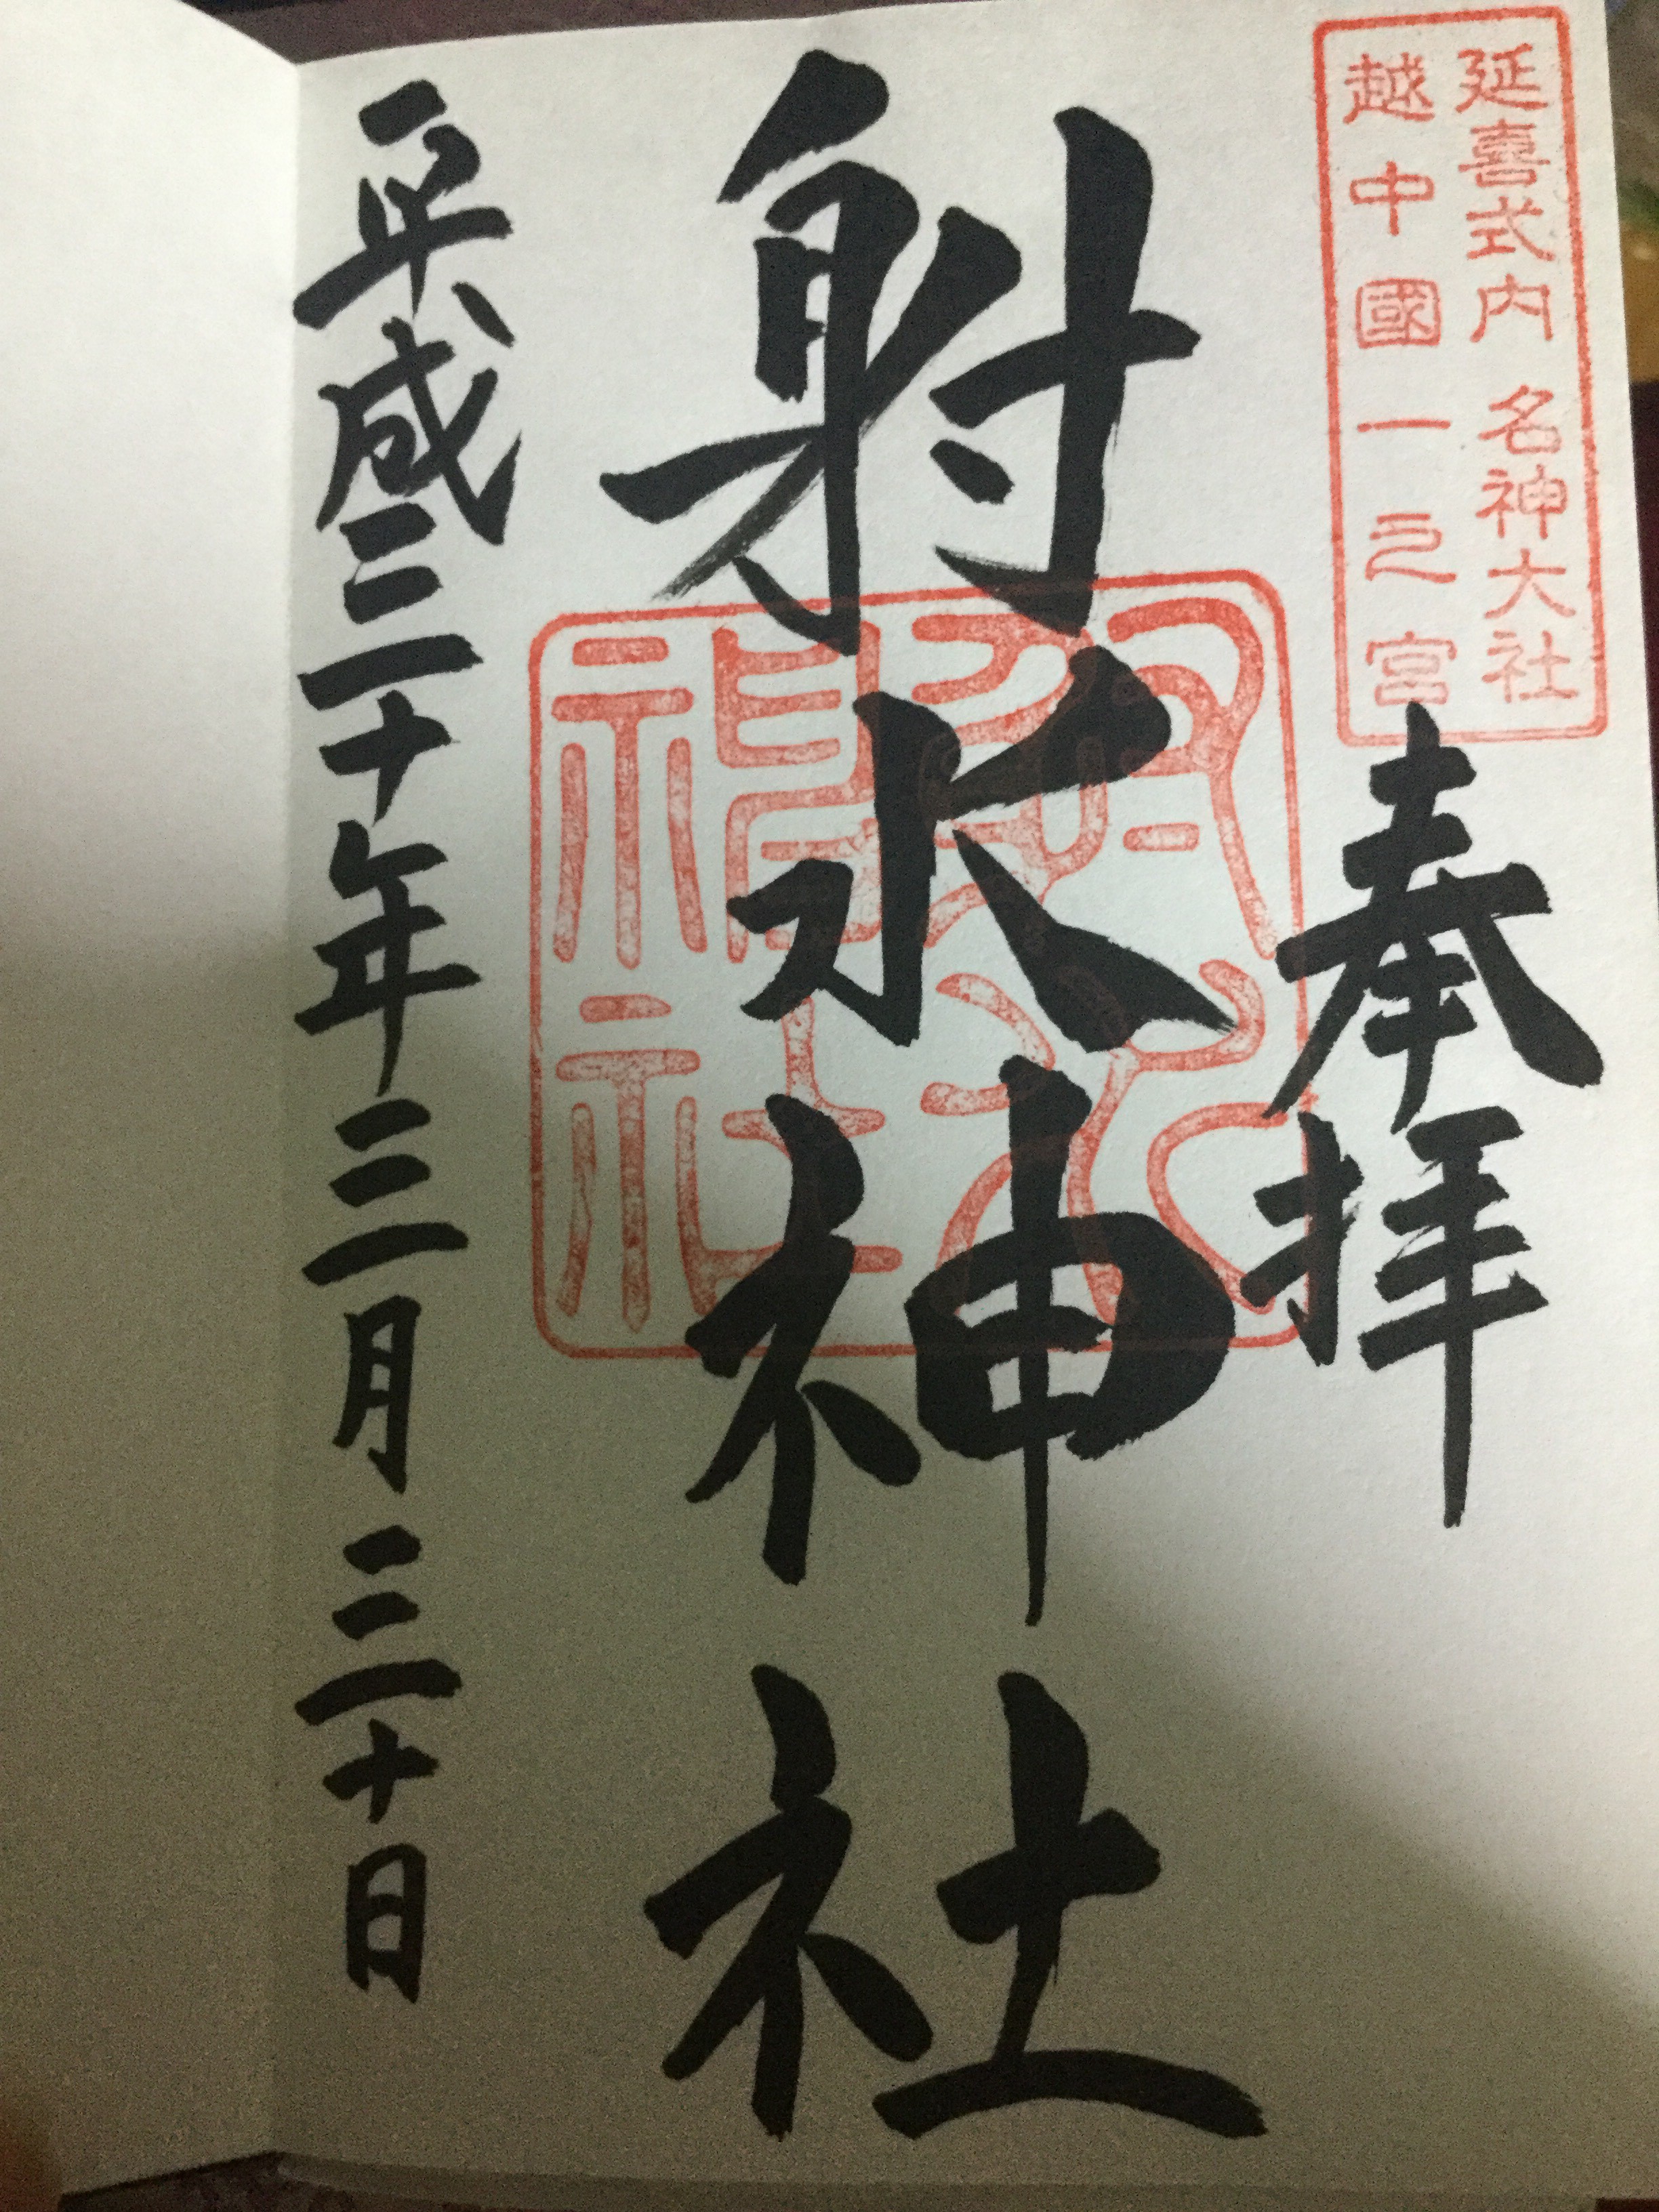 延喜式内 名神大社
越中國一之宮
奉拝
射水神社
射水
神社
平成三十年三月三十日